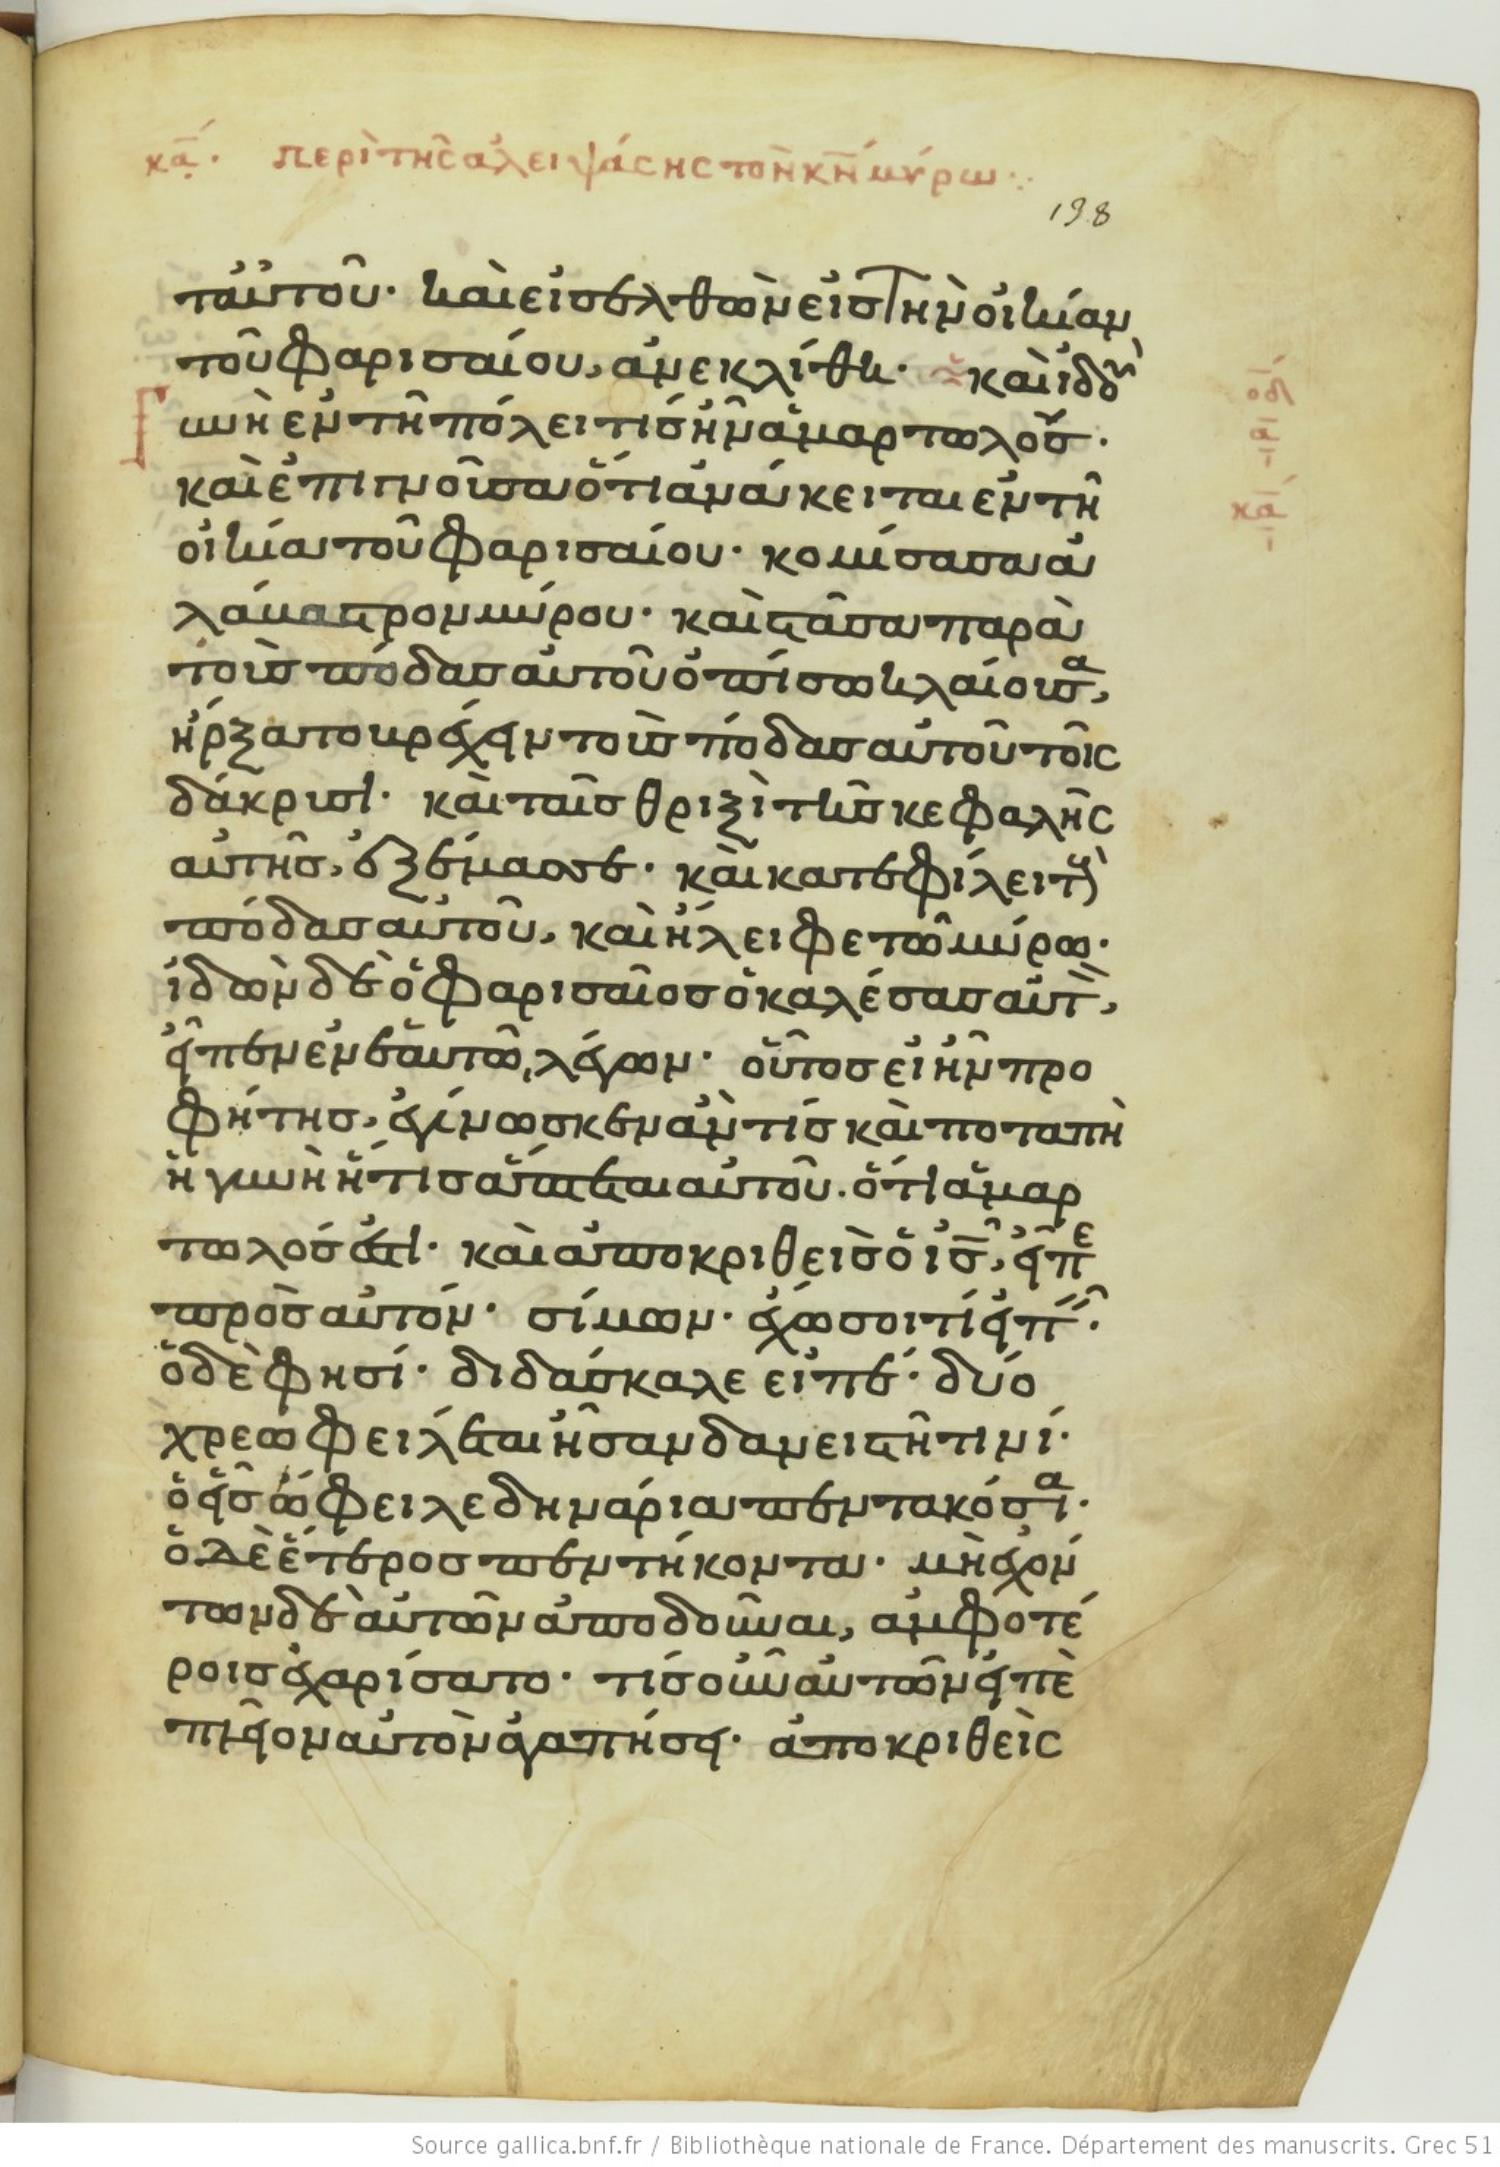 κα. περὶ τῆς ἀλειψάσης τὸν κν μύρω
198
τ αὐτοῦ· καὶ εἰσελθὼν εἰς τὴν οἰκίαν
τοῦ φαρισαίου, ἀνεκλίθη· καὶ ἰδοὺ
Γυνὴ ἐν τῆ πόλει τίς ἦν ἁμαρτωλὸς·
καὶ ἐπιγνοῦσα ὅτι ἀνάκειται ἐν τῆ
οἰκία τοῦ φαρισαίου· κομίσασα ἀ
λάμαστρον μύρου· καὶ στᾶσα παρὰ
τοὺς πόδας αὐτοῦ ὀπίσω κλαίουσα,
ἤρξατο βρέχειν τοὺς πόδας αὐτοῦ τοῖς
δάκρυσι· καὶ ταῖς θριξὶ τῆς κεφαλῆς
αὐτῆς, ἐξέμασσε· καὶ κατεφίλει τοὺς
πόδας αὐτοῦ, καὶ ἤλειφε τῶ μύρω·
ἰδὼν δὲ ὁ φαρισαῖος ὁ καλέσας αὐτὸν,
εἶπεν ἐν ἑαυτῶ, λέγων· οὗτος εἰ ἦν προ
φήτης, ἐγίνωσκεν ἂν τίς καὶ ποταπὴ
ἡ γυνὴ ἥτις ἅπτεται αὐτοῦ· ὅτι ἁμαρ
τωλός ἐστι· καὶ ἀποκριθεὶς ὁ ις, εἶπε
πρὸς αὐτόν· σίμων· ἔχω σοι τί εἰπεῖν·
ὁ δέ φησί· διδάσκαλε εἰπέ· δύο
χρεωφειλέται ἦσαν δανειστῆ τινί·
ὁ εἷς ὤφειλε δηνάρια πεντακόσια·
ὁ δὲ ἕτερος πεντήκοντα· μὴ ἐχόν
των δὲ αὐτῶν ἀποδοῦναι, ἀμφοτέ
ροις ἐχαρίσατο· τίς οὖν αὐτῶν εἰπὲ
πλεῖον αὐτὸν ἀγαπήσει· ἀποκριθεὶς
Source gallica.bnf.fr / Bibliothèque nationale de France. Département des manuscrits. Grec 51